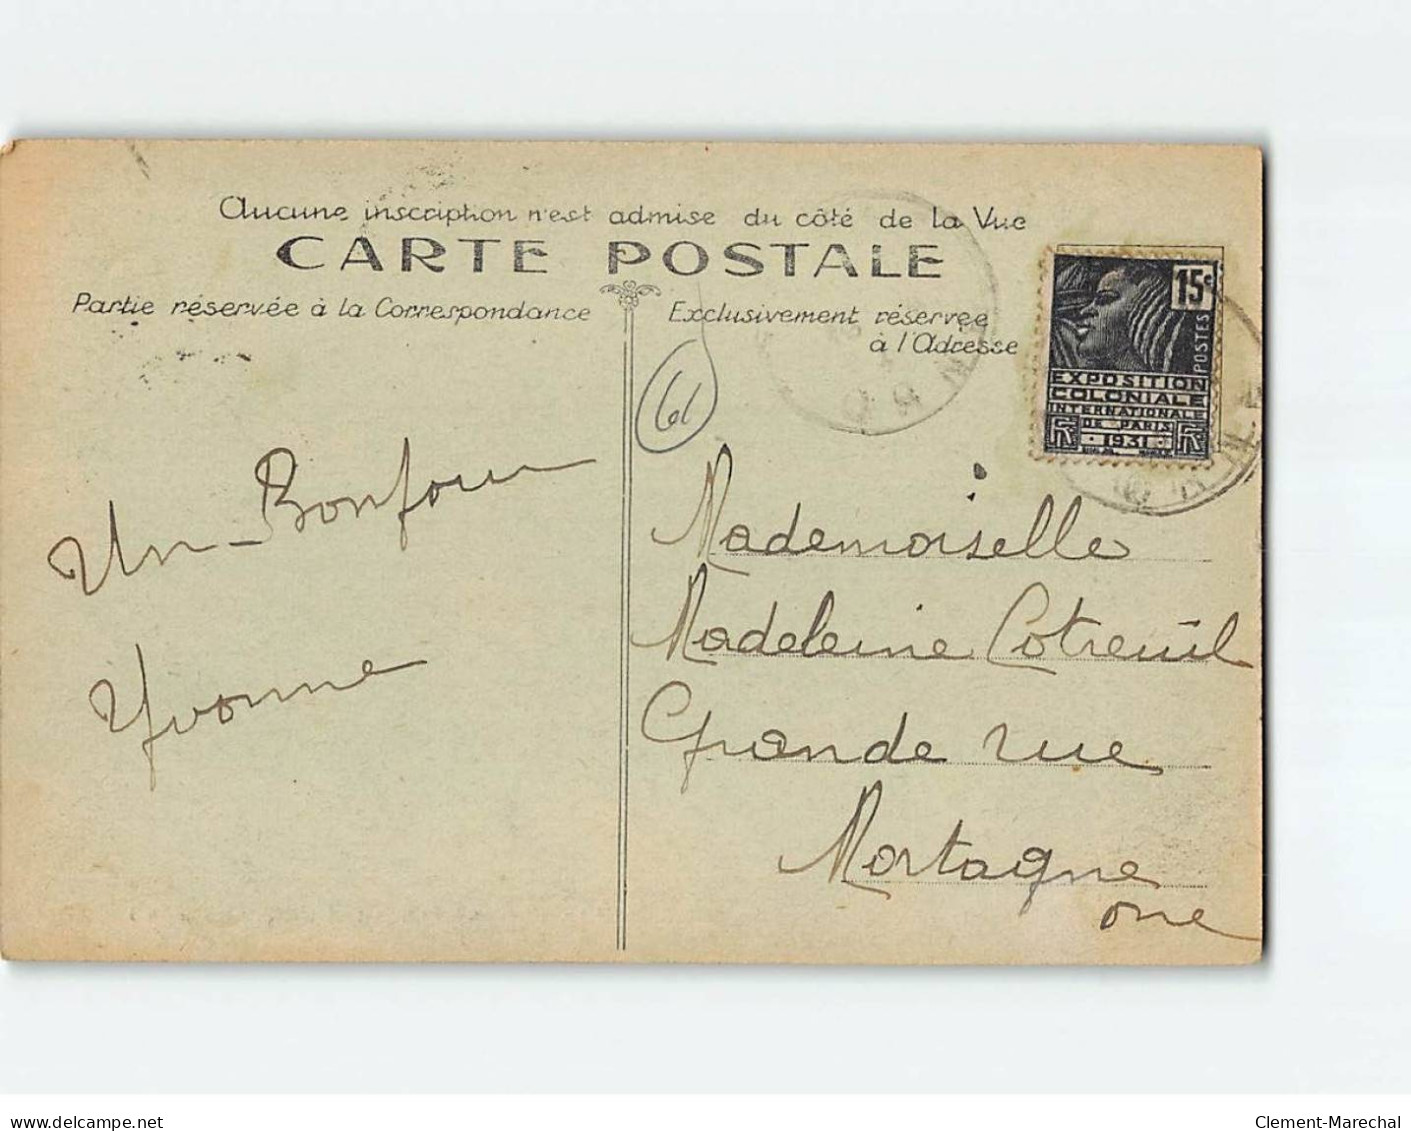 Aucune inscription n'est admise du côté de la Vue
CARTE POSTALE
Partie réservée à la Correspondance
Exclusivement réservée
à l'Adresse
15c
POSTES
EXPOSITION
COLONIALE
INTERNATIONALE
DE PARIS
1931
61
Un Bonjour
Yvonne
Mademoiselle
Madeleine Cotreuil
Grande rue
Mortagne
orne
www.delcampe.net
Clement-Marechal